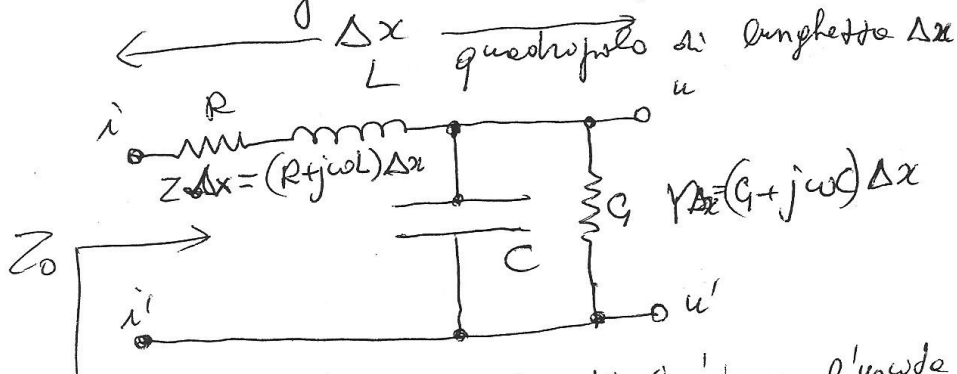 Δx
quadripolo di lunghetta Δx
L
u
i
R
ZΔx=(R+jωL)Δx
G
YΔx=(G+jωC)Δx
Z₀
C
i'
u'